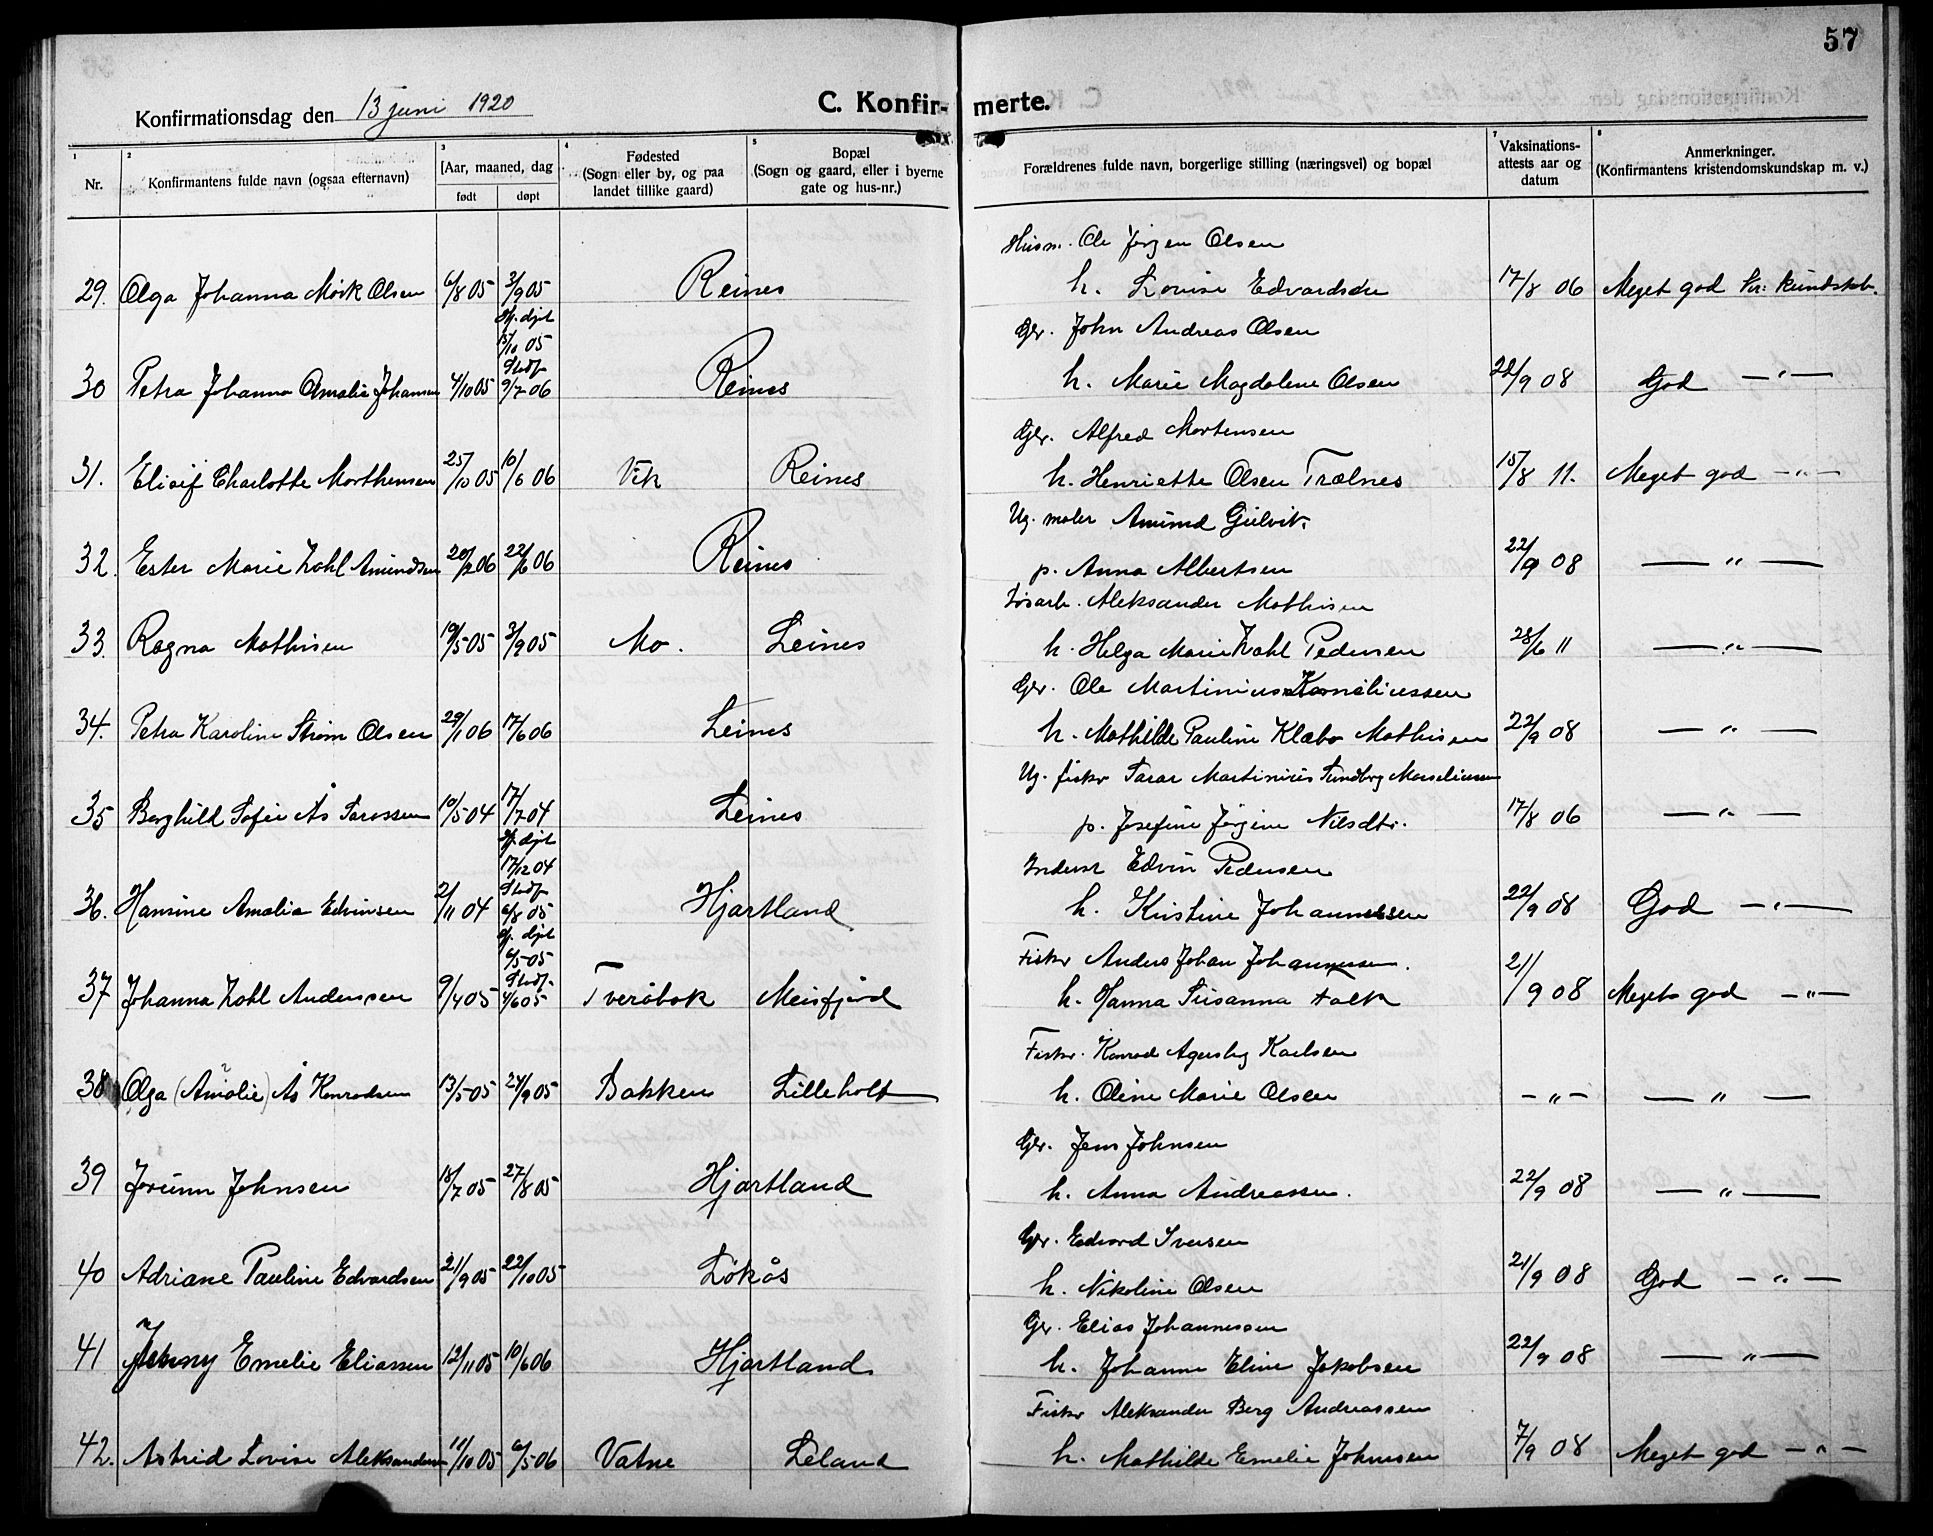 57
Konfirmationsdag den 13 juni 1920
C. Konfir-merte.
1 Nr.
2 Konfirmantens fulde navn (ogsaa efternavn)
3 [Aar, maaned, dag
født døpt
4 Fødested
(Sogn eller by, og paa
landet tillike gaard)
5 Bopæl
(Sogn og gaard, eller i byerne
gate og hus-nr.)
Forældrenes fulde navn, borgerlige stilling (næringsvei) og bopæl
7 Vaksinations-
attests aar og
datum
8 Anmerkninger.
(Konfirmantens kristendomskundskap m. v.)
Husm. Ole Jørgen Olsen
29. Olga Johanna Mørk Olsen 6/8 05 3/9 05 Reines h. Lovise Edvardsdtr 17/8 06 Meget god kr: kundskab.
Gbr. John Andreas Olsen
hj. døpt
15/10 05
Stadf.
30 Petra Johanna Amalie Johansen 4/10 05 9/7 06 Reines h. Marie Magdalene Olsen 22/9 08 God — " —
Gbr. Alfred Mortensen
31. Elisif Charlotte Morthensen 25/10 05 10/6 06 Vik Reines h. Henriette Olsen Trælnes 15/8 11. Meget god — " —
Ug. maler Amund Gulvik.
32. Ester Marie Zahl Amundsen 20/2 06 22/6 06 Reines p. Anna Albertsen 22/9 08 — " —
Løsarb. Aleksander Mathisen
33. Ragna Mathisen 19/5 05 3/9 05 Mo. Leines h. Helga Marie Zahl Pedersen 28/6 11 — " —
Gbr. Ole Martinius Korneliussen
34. Petra Karoline Strøm Olsen 29/1 06 17/6 06 Leines h. Mathilde Pauline Klæbo Mathisen 22/9 08 — " —
Ug. fisker Saras Martinius Sundborg Marseliussen
35 Borghild Sofie Ås Sarassen 10/5 04 17/7 04 Leines p. Josefine Jørgine Nilsdtr. 17/8 06 — " —
hj. døpt
17/12 04
Stadf.
Inderst Edvin Pedersen
36. Hansine Amalie Edvinsen 2/11 04 6/8 05 Hjartland h. Kristine Johannessen 22/9 08 God — " —
hj. døpt
6/5 05
Stadf.
Fisker Anders Johan Johannessen.
37 Johanna Zahl Anderssen 9/4 05 4/6 05 Tveråbak Meisfjord h. Hanna Susanna Falch 21/9 08 Meget god — " —
Fisker. Konrad Agersborg Karlsen
38 Olga (Amalie) Ås Konradsen 13/5 05 24/9 05 Bakken Lilleholt h. Oline Marie Olsen — " — — " —
Gbr. Jens Johnsen
39 Jorunn Johnsen 18/7 05 27/8 05 Hjartland h. Anna Andreassen. 22/9 08 — " —
Gbr. Edvard Iversen
40 Adriane Pauline Edvardsen 21/9 05 22/10 05 Løkås h. Nikoline Olsen 21/9 08 God — " —
Gbr. Elias Johannessen
41 Jenny Emelie Eliassen 12/11 05 10/6 06 Hjartland h. Johanne Eline Jakobsen 22/9 08 — " —
Fisker Aleksander Berg Andreassen
42. Astrid Lovise Aleksandersen 11/10 05 6/5 06 Vatne Leland h. Mathilde Emelie Johnsen 7/9 08 Meget god — " —